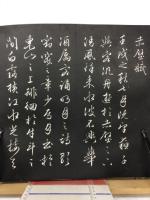 赤壁賦
壬戌之秋七月既望蘇子
與客泛舟遊於赤壁之下
清風徐來水波不興舉
酒屬客誦明月之詩歌
窈窕之章少焉月出於
東山之上徘徊於斗牛之
間白露橫江水光接天